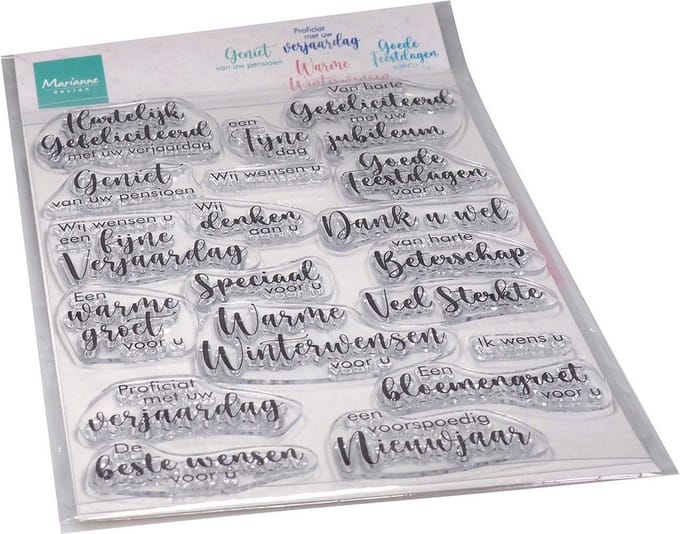 Marianne
design
Geniet
van uw pensioen
Proficiat
met uw
verjaardag
Warme
Winterwensen
Goede
Feestdagen
voor u
Hartelijk
Gefeliciteerd
met uw verjaardag
een
Fijne
dag
Van harte
Gefeliciteerd
met uw
jubileum
Geniet
van uw pensioen
Wij wensen u
Goede
Feestdagen
voor u
Wij wensen u
een fijne
Verjaardag
Wij
denken
aan u
Dank u wel
Speciaal
voor u
van harte
Beterschap
Een
warme
groet
voor u
Warme
Winterwensen
voor u
Veel Sterkte
Ik wens u
Proficiat
met uw
verjaardag
Een
bloemengroet
voor u
De
beste wensen
voor u
een
voorspoedig
Nieuwjaar